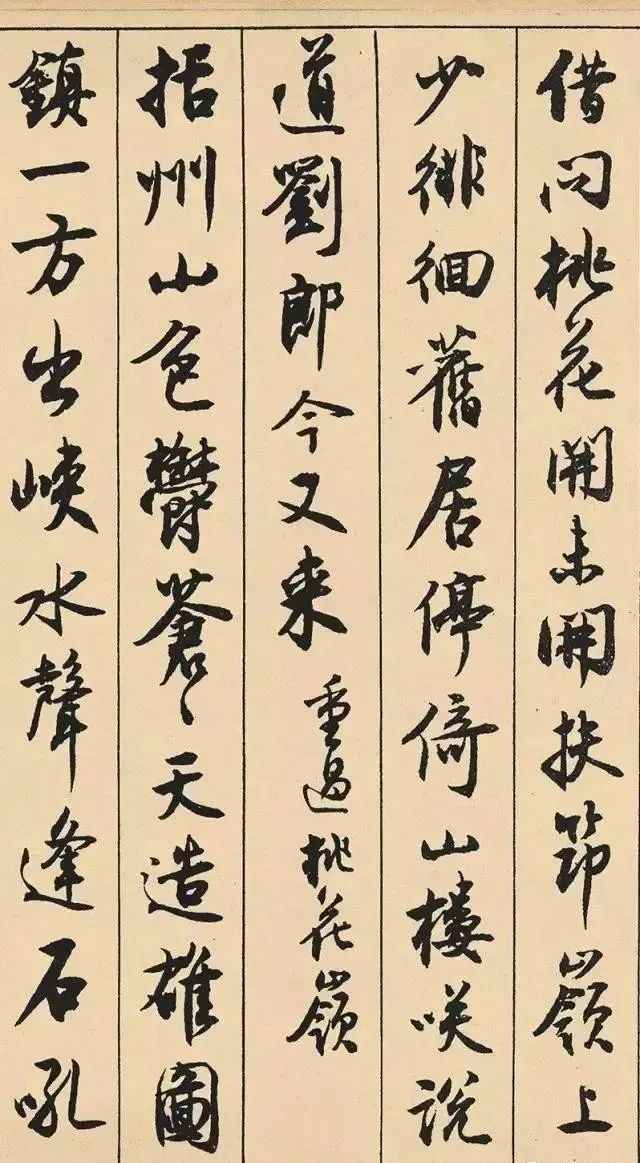 借问桃花開未開扶筇嶺上
少徘徊舊居停倚山樓咲説
道劉郎今又来
重過桃花嶺
括州山色鬱蒼〻天造雄圖
鎮一方出峡水聲逢石吼